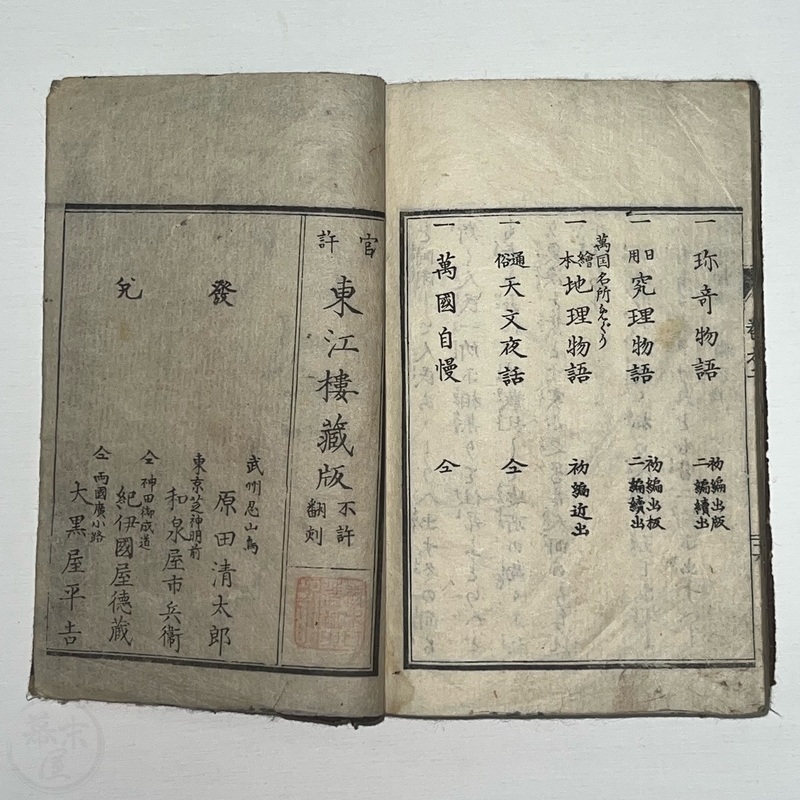 一 珎奇物語 初編出版 二編續出
一 日用 究理物語 初編出板 二編續出
萬国名所めぐり
一 繪本 地理物語 初編近出
一 通俗 天文夜話 仝
一 萬國自慢 仝
官許
東江樓藏版 不許翻刻
發兌
武州忍山嶌
原田清太郎
東京芝神明前
和泉屋市兵衞
仝 神田御成道
紀伊國屋德藏
仝 兩國廣小路
大黒屋平吉
幕末屋